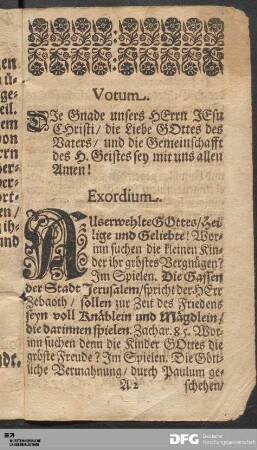 Votum.
DIe Gnade unsers HErrn JEsu
CHristi/ die Liebe GOttes des
Vaters/ und die Gemeinschafft
des H. Geistes sey mit uns allen
Amen!
Exordium.
AUserwehlte GOttes/ Hei-
lige und Geliebte! Wor-
inn suchen die kleinen Kin-
der ihr gröstes Vergnügen?
Im Spielen. Die Gassen
der Stadt Jerusalem/ spricht der HErr
Zebaoth/ sollen zur Zeit des Friedens
seyn voll Knäblein und Mägdlein/
die darinnen spielen. Zachar. 8.5. Wor-
inn suchen denn die Kinder GOttes die
gröste Freude? Im Spielen. Die Gött-
liche Vermahnung/ durch Paulum ge-
A 2 schehen/
DFG